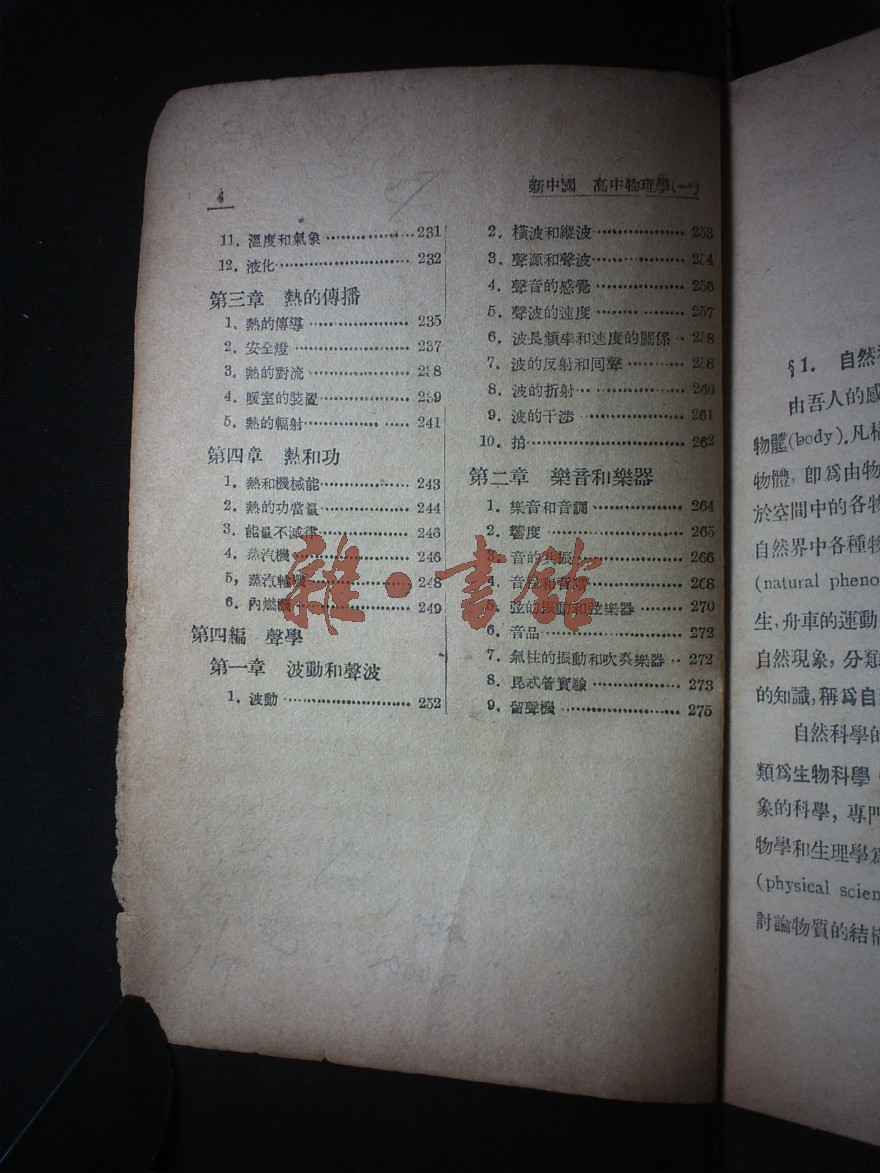 4
新中國 高中物理學(一)
11. 溫度和氣象 231
12. 液化 232
第三章 熱的傳播
1. 熱的傳導 235
2. 安全燈 237
3. 熱的對流 238
4. 暖室的裝置 239
5. 熱的輻射 241
第四章 熱和功
1. 熱和機械能 243
2. 熱的功當量 244
3. 能量不滅律
4. 蒸汽機 246
5. 蒸汽輪機 248
6. 內燃機 249
第四編 聲學
第一章 波動和聲波
1. 波動 252
2. 橫波和縱波 253
3. 聲源和聲波 254
4. 聲音的感覺 256
5. 聲波的速度 257
6. 波長頻率和速度的關係 258
7. 波的反射和回聲 258
8. 波的折射 260
9. 波的干涉 261
10. 拍 262
第二章 樂音和樂器
1. 樂音和音調 264
2. 響度 265
3. 音的共振 266
4. 音階和音譜 268
5. 弦的振動和弦樂器 270
6. 音品 272
7. 氣柱的振動和吹奏樂器 272
8. 昆忒管實驗 273
9. 留聲機 275
雜·書館
§1. 自然科
由吾人的感
物體(body).凡構
物體, 卽爲由物
於空間中的各物
自然界中各種物
(natural pheno
生,舟車的運動
自然現象, 分類
的知識,稱爲自
自然科學的
類爲生物科學
象的科學, 專門
物學和生理學爲
(physical scien
討論物質的結構